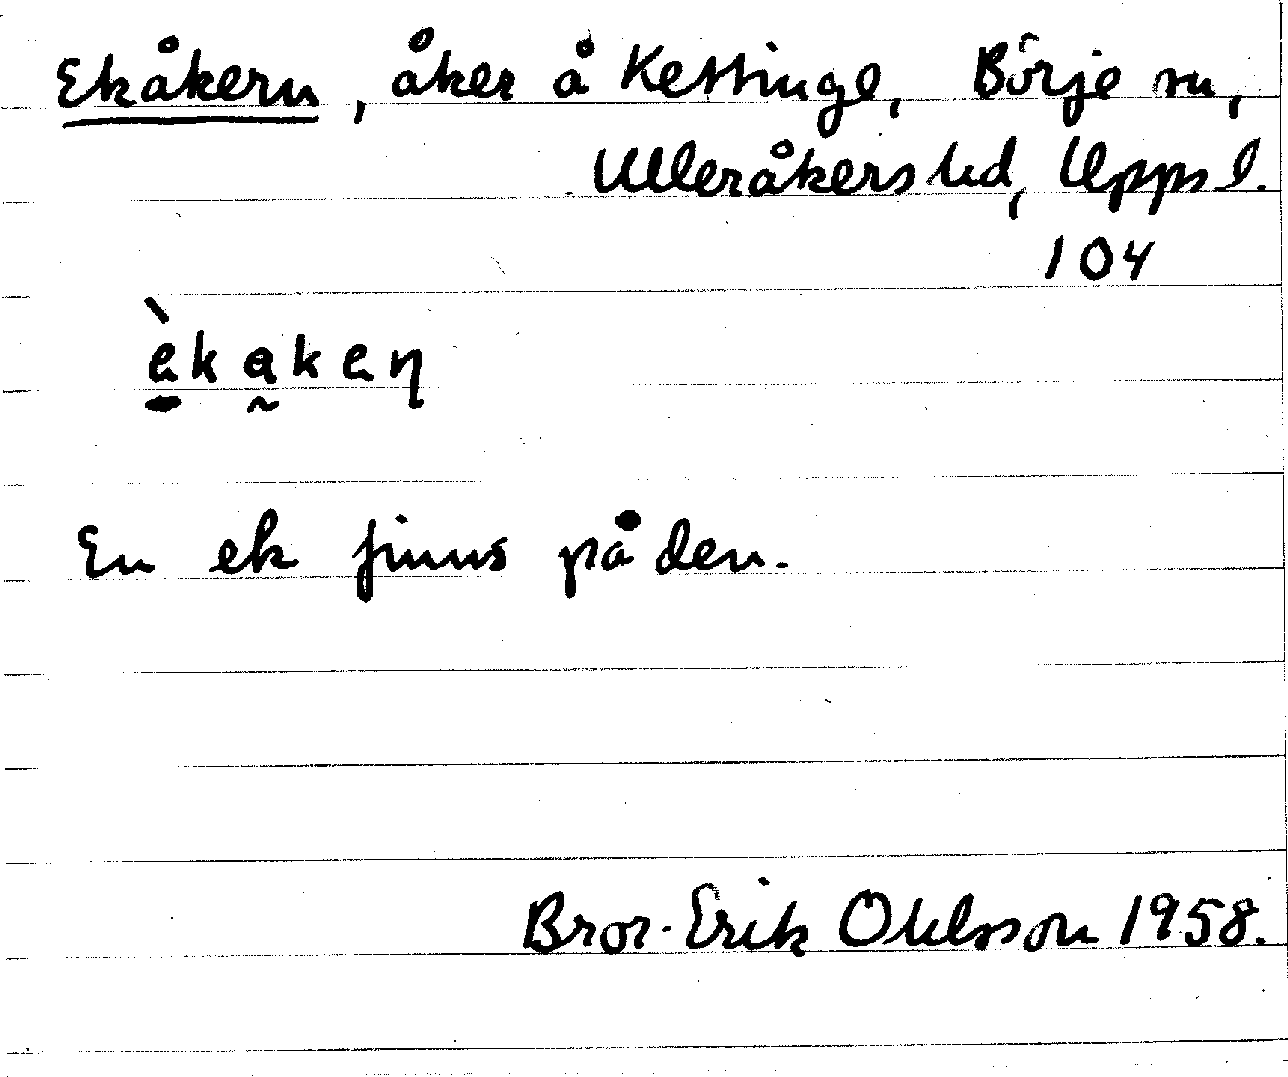 Ekåkern, åker å Kettinge, Börje sn,
Ulleråkers hd, Uppsl.
104
èkakeṇ
En ek finns på den.
Bror-Erik Ohlsson 1958.